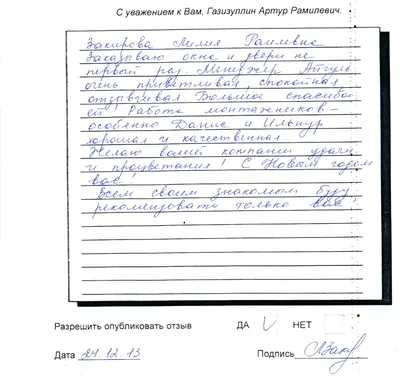 С уважением к Вам, Газизуллин Артур Рамилевич.
Закирова Лилия Раилевна
Заказываю окна и двери не
первый раз. Менеджер Айгуль
очень приветливая, спокойная
отзывчивая. Большое спасибо
ей! Работа монтажников –
особенно Данис и Ильнур
хорошая и качественная.
Желаю вашей компании удачи
и процветания! С Новым годом
вас!
Всем своим знакомым буду
рекомендовать только вас!
Разрешить опубликовать отзыв ДА V НЕТ
Дата 24.12.13 Подпись